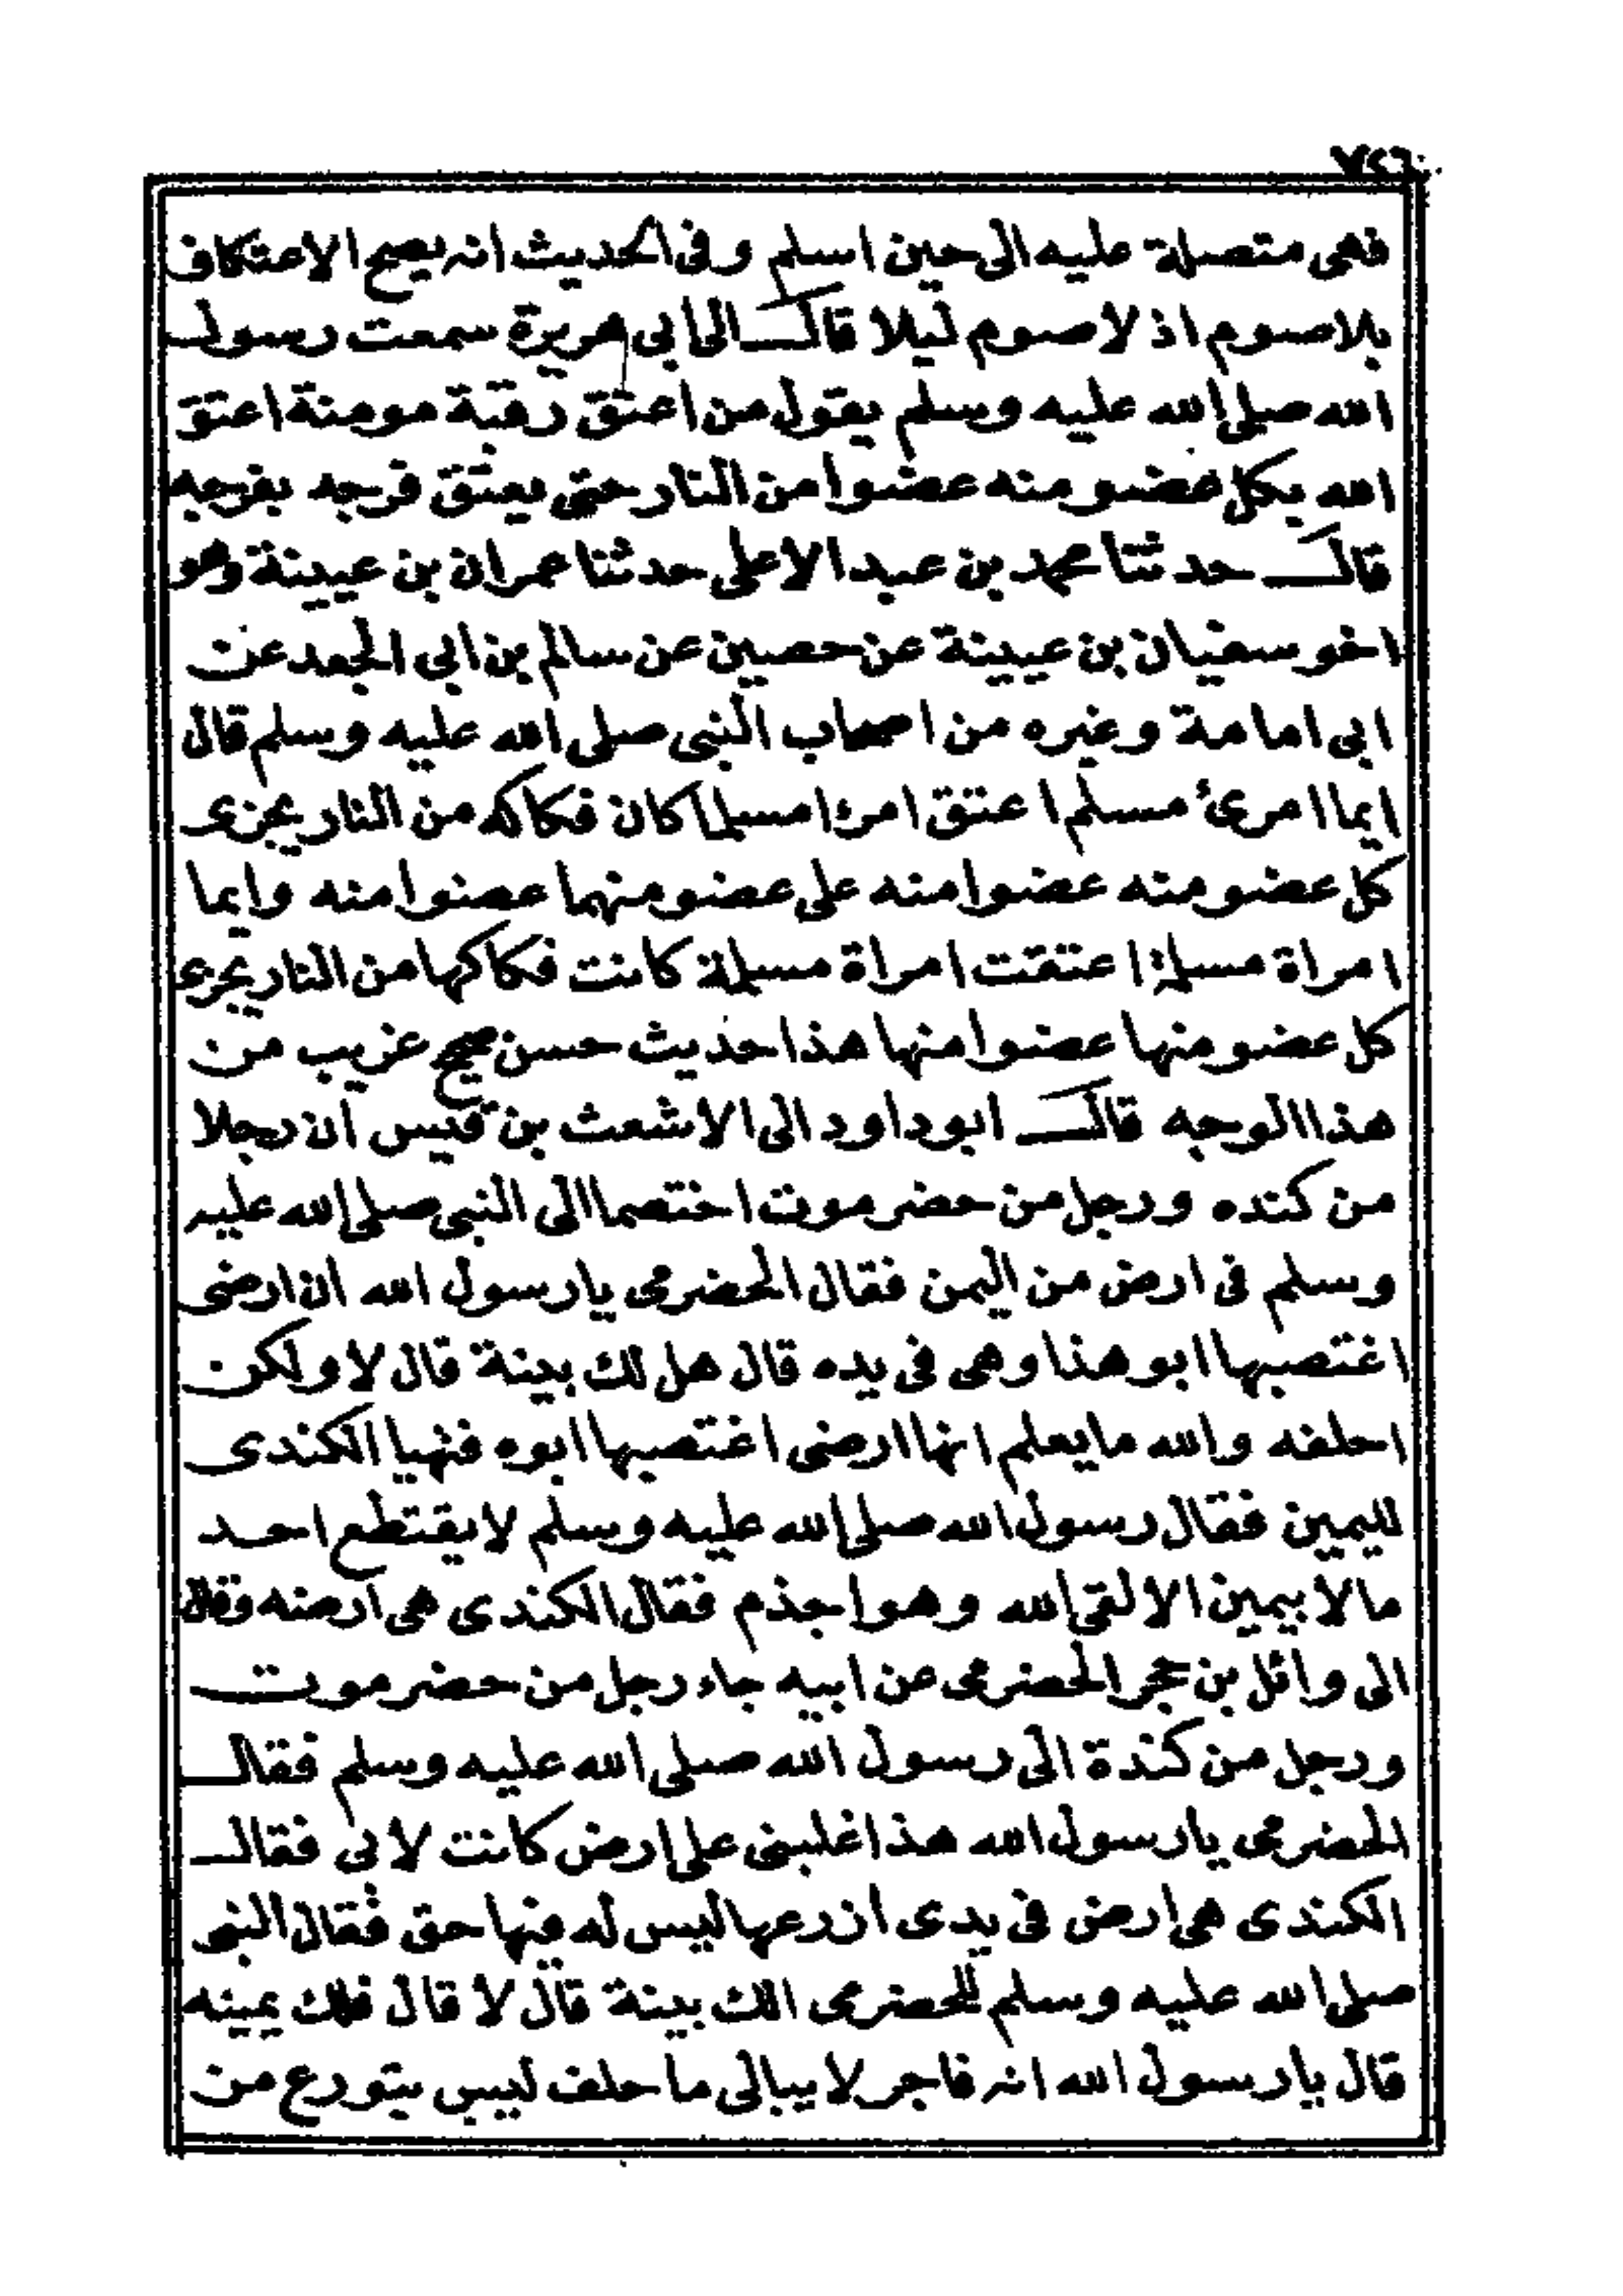 فهى متصلة عليه الى حين اسلم وفى الحديث انه يصح الاعتكاف
بلا صوم اذ لا صوم ليلا قال الى ابى هريرة سمعت رسول
الله صلى الله عليه وسلم يقول من اعتق رقبة مومنة اعتق
الله بكل عضو منه عضوا من النار حتى يعتق فرجه بفرجه
قال حدثنا محمد بن عبد الاعلى حدثنا عمران بن عيينة وهو
اخو سفيان بن عيينة عن حصين عن سالم بن ابى الجعد عن
ابى امامة وغيره من اصحاب النبى صلى الله عليه وسلم قال
ايما امرئ مسلم اعتق امرءا مسلما كان فكاكه من النار يجزى
كل عضو منه عضوا منه على عضو منهما عضوا منه وايما
امراة مسلمة اعتقت امراة مسلمة كانت فكاكها من النار يجزى
كل عضو منها عضوا منها هذا حديث حسن صحيح غريب من
هذا الوجه قال ابو داود الى الاشعث بن قيس ان رجلا
من كنده ورجل من حضرموت اختصما الى النبى صلى الله عليه
وسلم فى ارض من اليمن فقال الحضرمى يا رسول الله ان ارضى
اغتصبها ابو هذا وهى فى يده قال هل لك بينة قال لا ولكن
احلفه والله ما يعلم انها ارضى اغتصبها ابوه فتهيا الكندى
لليمين فقال رسول الله صلى الله عليه وسلم لا يقتطع احد
مالا بيمين الا لقى الله وهو اجذم فقال الكندى هى ارضه وقال
الى وائل بن حجر الحضرمى عن ابيه جاء رجل من حضرموت
ورجل من كندة الى رسول الله صلى الله عليه وسلم فقال
الحضرمى يا رسول الله هذا غلبنى على ارض كانت لابى فقال
الكندى هى ارض فى يدى ازرعها ليس له فيها حق فقال النبى
صلى الله عليه وسلم للحضرمى الك بينة قال لا قال فلك يمينه
قال يا رسول الله انه فاجر لا يبالى ما حلف ليس يتورع من